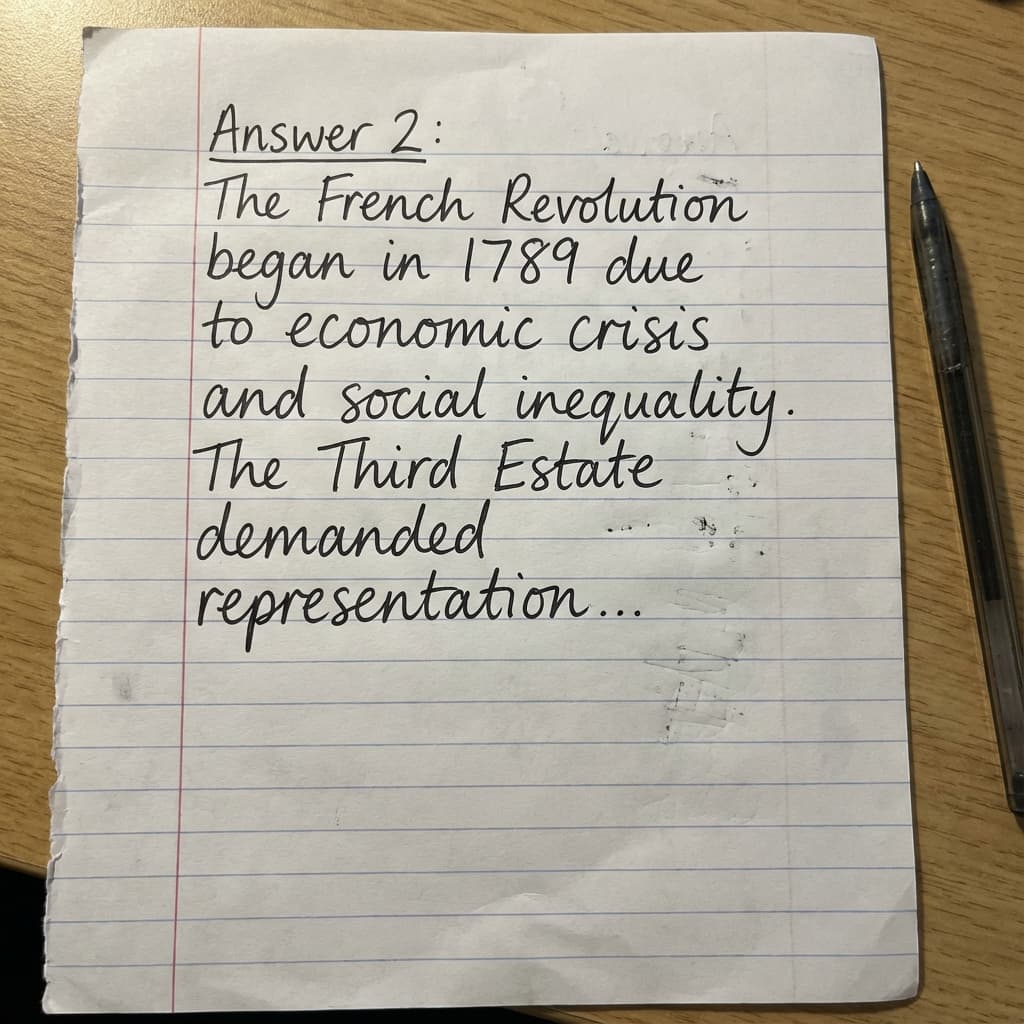 Answer 2:
The French Revolution
began in 1789 due
to economic crisis
and social inequality.
The Third Estate
demanded
representation...